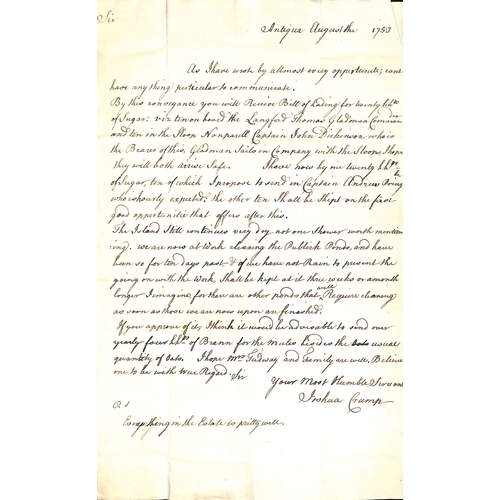 Sir
Antigua August the 1753
As I have wrote by allmost every opportunite; cant
have any thing perticular to communicate.
By this conveyance you will Receive Bill of Lading for twenty hhds
of Sugar. viz ten on board the Langford Thomas Gladman Comdr
and ten in the Sloop Nonparell Captain John Dickenson who is
the Bearer of this, Gladman Sails in Company with the Sloop, I hope
they will both arrive Safe. I have now by me twenty hhds
of Sugar, ten of which I propose to send in Captain Andrew
who is hourly expected; the other ten Shall be Shipt on the first
good opportunitie that offers after this.
The Island Still continues very dry not one Shower worth mention
ing. we are now at Work cleaning the Publick Ponds, and have
been so for ten days past, & if we have not Rain to prevent the
going on with the Work, Shall be kept at it three weeks or a month
longer I imagine, for there are other ponds that will Require cleaning
as soon as those we are now upon are finished.
If you approve of it, I think it would be advisable to send over
yearly four hhds of Brann for the Mules besides the usual
quantity of oats. I hope Mrs Tudway and Family are well. Believe
me to be with true Regard. Sir
Your Most Humble Servant
Joshua Crump
Everything in the Estate is pretty well.